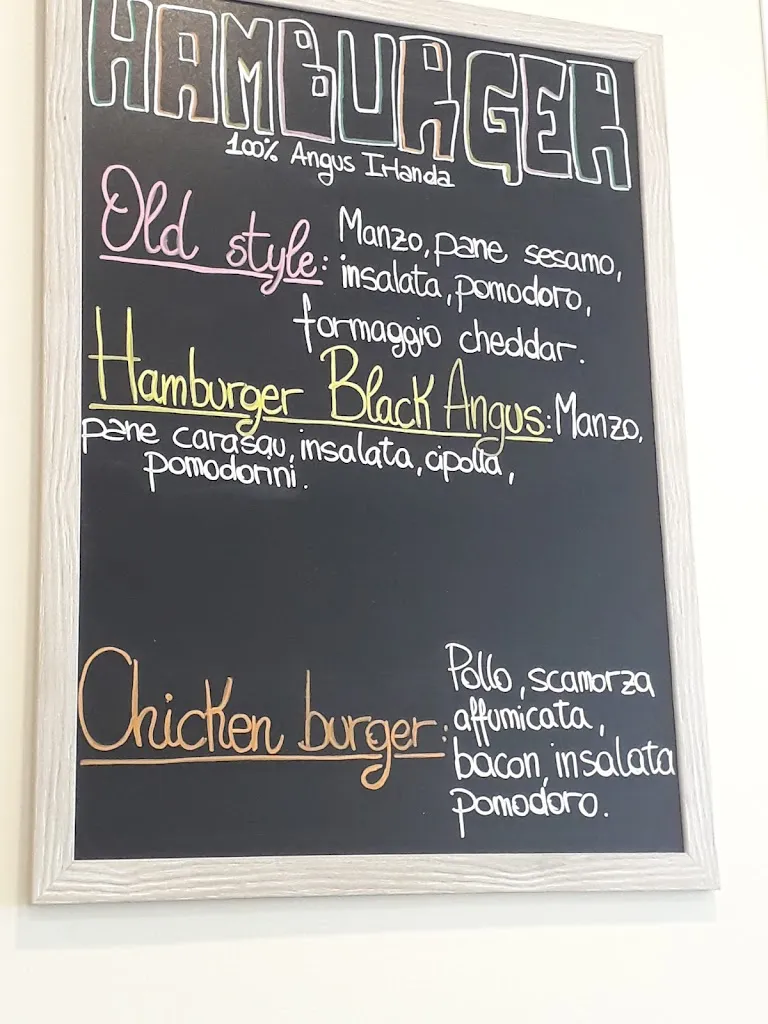 HAMBURGER
100% Angus Irlanda
Old style: Manzo, pane sesamo,
insalata, pomodoro,
formaggio cheddar.
Hamburger Black Angus: Manzo,
pane carasau, insalata, cipolla,
pomodorini.
Chicken burger: Pollo, scamorza
affumicata,
bacon, insalata
pomodoro.